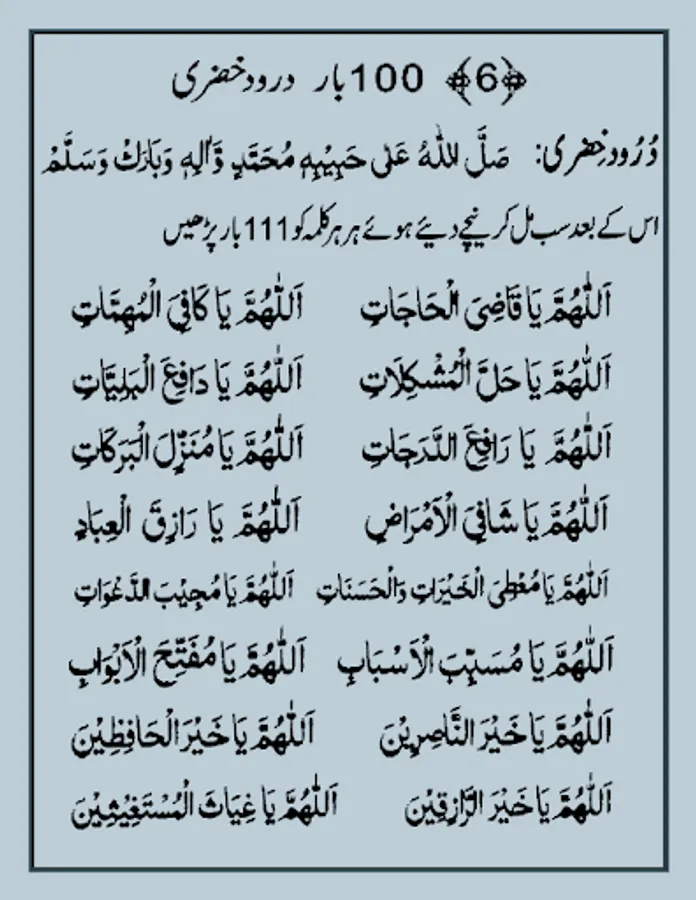 ﴿6﴾ 100 بار درود خضری
دُرُود خِضری: صَلَّ اللّٰهُ عَلٰی حَبِیْبِهٖ مُحَمَّدٍ وَّاٰلِهٖ وَبَارَكْ وَسَلَّمْ
اس کے بعد سب مل کر نیچے دیئے ہوئے ہر ہر کلمہ کو 111 بار پڑھیں
اَللّٰهُمَّ یَا قَاضِیَ الْحَاجَاتِ اَللّٰهُمَّ یَا کَافِیَ الْمُهِمَّاتِ
اَللّٰهُمَّ یَا حَلَّ الْمُشْکِلَاتِ اَللّٰهُمَّ یَا دَافِعَ الْبَلِیَّاتِ
اَللّٰهُمَّ یَا رَافِعَ الدَّرَجَاتِ اَللّٰهُمَّ یَا مُنَزِّلَ الْبَرَکَاتِ
اَللّٰهُمَّ یَا شَافِیَ الْاَمْرَاضِ اَللّٰهُمَّ یَا رَازِقَ الْعِبَادِ
اَللّٰهُمَّ یَا مُعْطِیَ الْخَیْرَاتِ وَالْحَسَنَاتِ اَللّٰهُمَّ یَا مُجِیْبَ الدَّعْوَاتِ
اَللّٰهُمَّ یَا مُسَبِّبَ الْاَسْبَابِ اَللّٰهُمَّ یَا مُفَتِّحَ الْاَبْوَابِ
اَللّٰهُمَّ یَا خَیْرَ النَّاصِرِیْنَ اَللّٰهُمَّ یَا خَیْرَ الْحَافِظِیْنَ
اَللّٰهُمَّ یَا خَیْرَ الرَّازِقِیْنَ اَللّٰهُمَّ یَا غِیَاثَ الْمُسْتَغِیْثِیْنَ